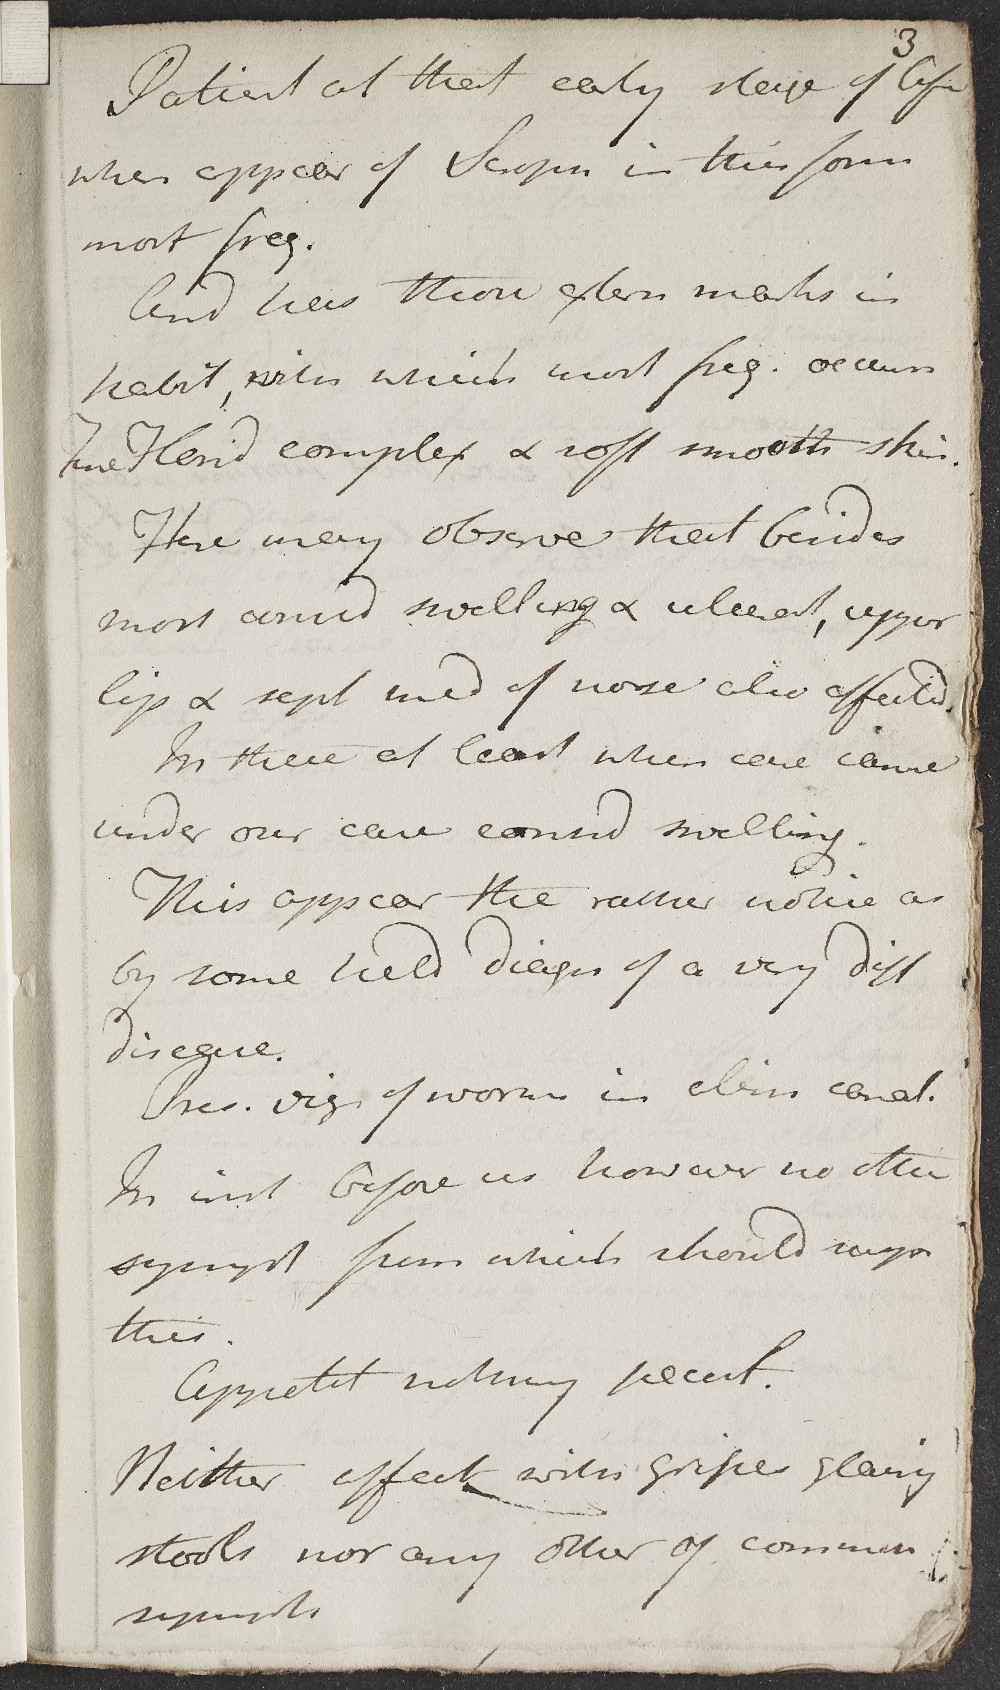 3
Patient at that early stage of life
when appear of Scrofu in this form
most freq.
And has those extern marks in
habit, with which most freq. occurs
Fine Florid complex & soft smooth skin.
Here may observe that besides
most consid swelling & ulcerat, upper
lip & sept med of nose also affected.
In these at least when case came
under our care consid swelling.
This appear the rather notice as
by some held diagn of a very diff
disease.
Pres. vigr of worms in alim canal.
In inst before us however no other
sympt from which should susp
this.
Appetit nothing peculi.
Neither affect with gripes glairy
stools nor any other of common
sympts